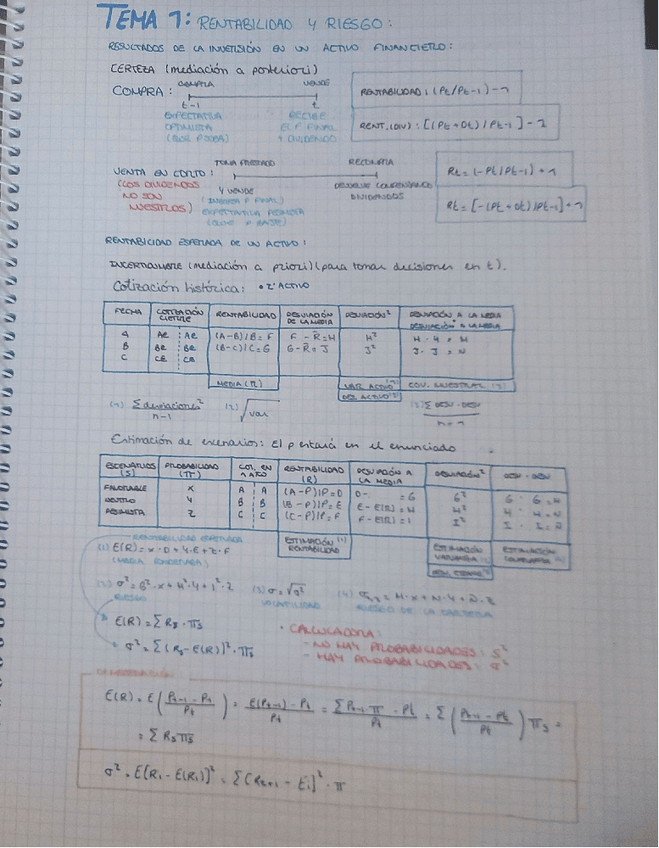 TEMA 1: RENTABILIDAD Y RIESGO:
RESULTADOS DE LA INVERSIÓN EN UN ACTIVO FINANCIERO:
CERTEZA (mediación a posteriori)
COMPRA: COMPRA VENDE
t-1 t
EXPECTATIVA OPTIMISTA
RECIBE EL P FINAL + DIVIDENDO
RENTABILIDAD: (Pt/Pt-1)-1
RENT.(DIV): [(Pt+Dt)/Pt-1]-1
VENTA EN CORTO: TOMA PRESTADO RECOMPRA
(LOS DIVIDENDOS NO SON NUESTROS)
Y VENDE
EXPECTATIVA PESIMISTA
DIVIDENDOS
Rt = (-Pt/Pt-1)+1
Rt = [-(Pt+Dt)/Pt-1]+1
RENTABILIDAD ESPERADA DE UN ACTIVO:
INCERTIDUMBRE (mediación a priori) (para tomar decisiones en t).
Cotización histórica: • 2º ACTIVO
FECHA COTIZACIÓN CIERRE RENTABILIDAD DESVIACIÓN DE LA MEDIA DESVIACIÓN² DESVIACIÓN A LA MEDIA · DESVIACIÓN A LA MEDIA
A AC AC (A-B)/B=F F-R̄=H H² H·H=M
B BC BC (B-C)/C=G G-R̄=J J² J·J=N
C CC CC
MEDIA (R̄) VAR ACTIVO (1) COV. MUESTRAL (3)
DES. ACTIVO (2)
(1) Σ desviaciones² / n-1 (2) √var (3) Σ DESV·DESV / n-1
Estimación de escenarios: El p estará en el enunciado
ESCENARIOS (S) PROBABILIDAD (π) COT. EN 1 AÑO RENTABILIDAD (R) DESVIACIÓN A LA MEDIA DESVIACIÓN² DESV·DESV
FAVORABLE X A A (A-P)/P=D D- =G G² G·G=M
NEUTRO Y B B (B-P)/P=E E-E(R)=H H² H·H=N
PESIMISTA Z C C (C-P)/P=F F-E(R)=I I² I·I=Ñ
ESTIMACIÓN RENTABILIDAD (1) ESTIMACIÓN VARIANZA (2) ESTIMACIÓN COVARIANZA (4)
RENTABILIDAD ESPERADA
(1) E(R) = X·D+Y·E+Z·F
(MEDIA PONDERADA)
(2) σ² = G²·X+H²·Y+I²·Z (3) σ=√σ² (4) σ₁,₂ = M·X+N·Y+Ñ·Z
RIESGO VOLATILIDAD RIESGO DE LA CARTERA
E(R) = Σ Rs·πs
σ² = Σ (Rs-E(R))²·πs
• CALCULADORA:
- NO HAY PROBABILIDADES: S²
- HAY PROBABILIDADES: σ²
DEMOSTRACIÓN
E(R) = E(Pt+1-Pt / Pt) = E(Pt+1)-Pt / Pt = ΣPt+1·π - Pt / Pt = Σ(Pt+1-Pt / Pt) πs =
= Σ Rs πs
σ² = E[Ri-E(Ri)]² = Σ[Rt+1 - Ei]²·π